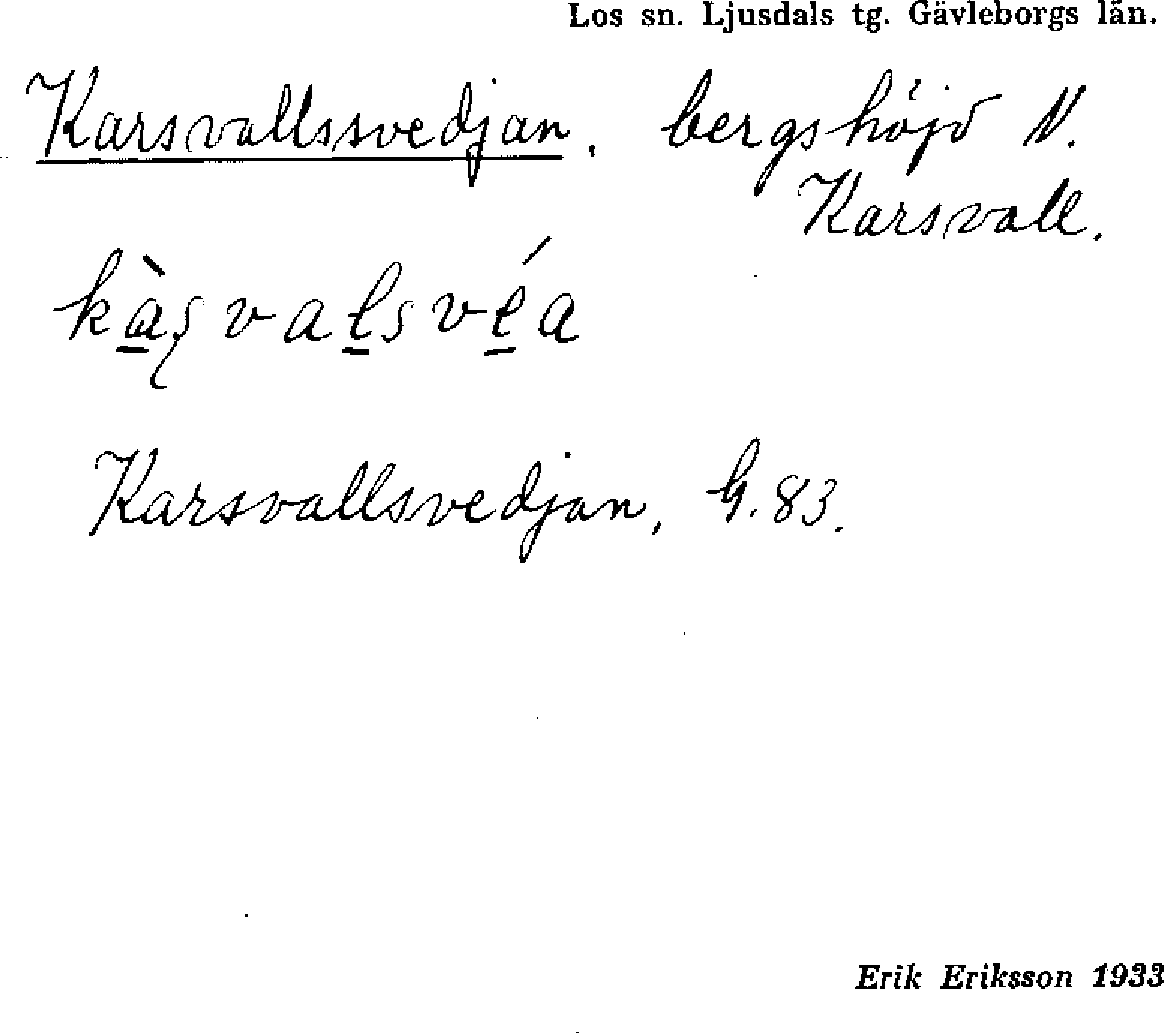 Los sn. Ljusdals tg. Gävleborgs län.
Karsvallssvedjan, bergshöjd N.
Karsvall.
kàʂvalsvéa
Karsvallsvedjan, G. 83.
Erik Eriksson 1933